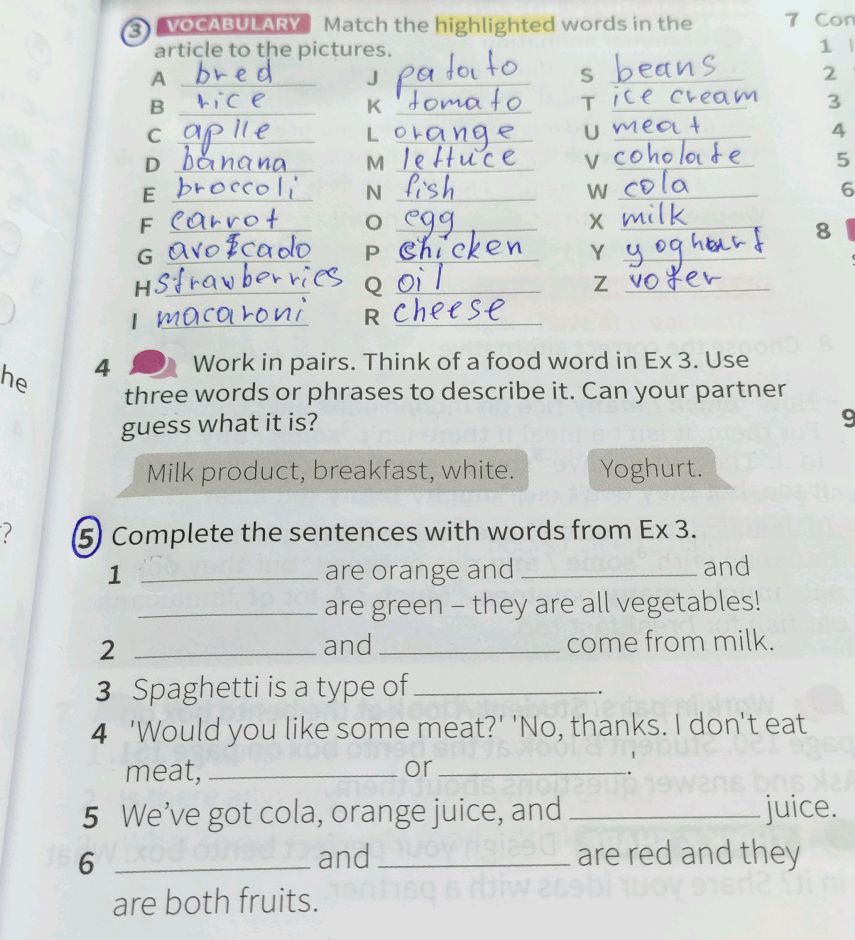 3 VOCABULARY Match the highlighted words in the
article to the pictures.
A bred J patato S beans
B rice K tomato T ice cream
C aplle L orange U meat
D banana M lettuce V coholate
E broccoli N fish W cola
F carrot O egg X milk
G avocado P chicken Y yoghurt
H strawberries Q oil Z voter
I macaroni R cheese
4 Work in pairs. Think of a food word in Ex 3. Use
three words or phrases to describe it. Can your partner
guess what it is?
Milk product, breakfast, white. Yoghurt.
5 Complete the sentences with words from Ex 3.
1 ____________ are orange and ____________ and
____________ are green – they are all vegetables!
2 ____________ and ____________ come from milk.
3 Spaghetti is a type of ____________.
4 'Would you like some meat?' 'No, thanks. I don't eat
meat, ____________ or ____________.'
5 We've got cola, orange juice, and ____________ juice.
6 ____________ and ____________ are red and they
are both fruits.
he
?
7 Con
1
2
3
4
5
6
8
9